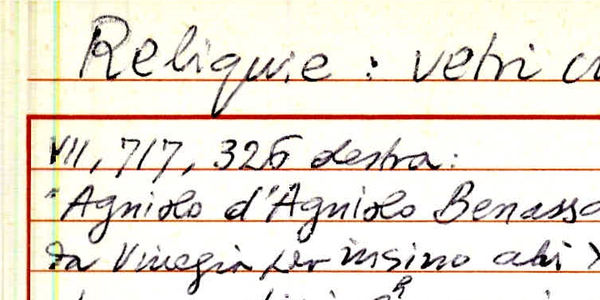 Reliquie: vetri
VII, 717, 326 destra:
"Agniolo d'Agniolo Benass
da Vinegia per insino adi